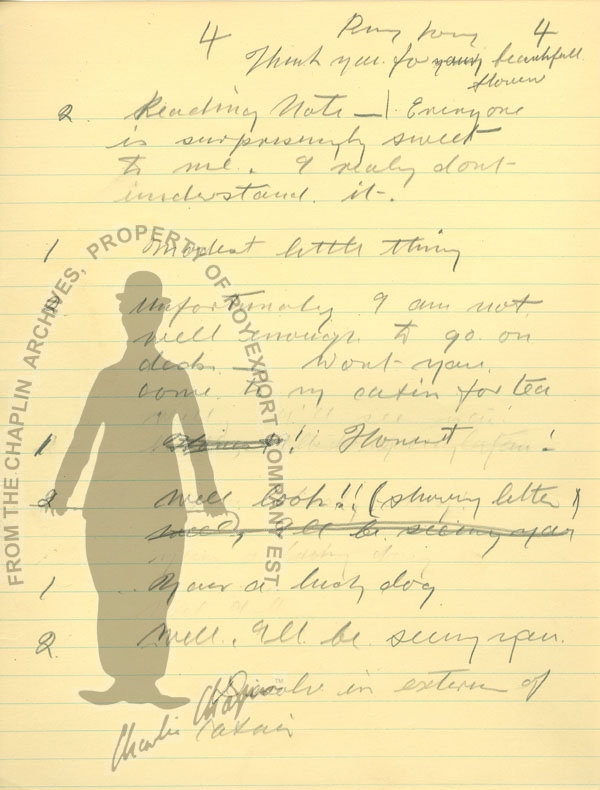 4 4
Thank you for your beautifull
flower
2. Reading Note — Everyone
is surprisingly sweet
to me. I realy dont
understand it.
1 Modest little thing
2 Unfortunaly I am not
well enough to go on
deck. Wont you
come to my cabin for tea
1 Honest! Honest!
2 Well look!! (showing letter)
well, I'll be seeing you
1 Your a lucky dog
2. Well. I'll be seeing you.
Disolve in exterior of
Cabin
FROM THE CHAPLIN ARCHIVES, PROPERTY OF ROY EXPORT COMPANY EST
Charlie Chaplin™